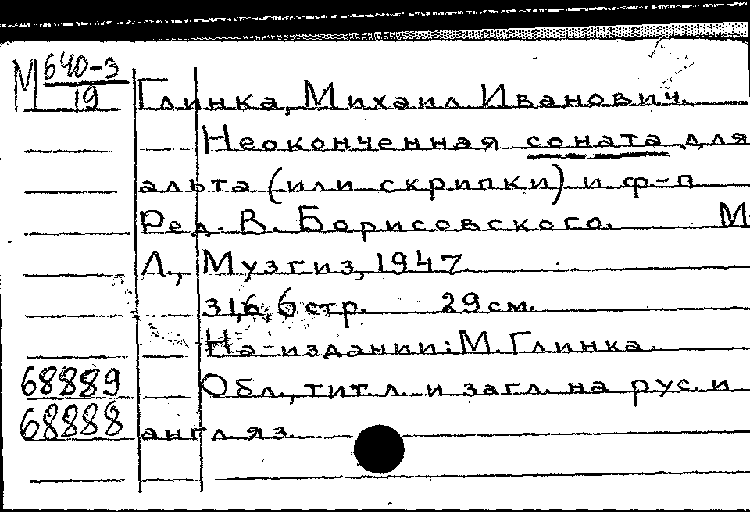 М 640-3
19
Глинка, Михаил Иванович.
Неоконченная соната для
альта (или скрипки) и ф-п
Ред. В. Борисовского. М
Л., Музгиз, 1947
31,6, 6 стр. 29 см.
На издании: М. Глинка.
68889 Обл., тит. л. и загл. на рус. и
68888 англ яз.